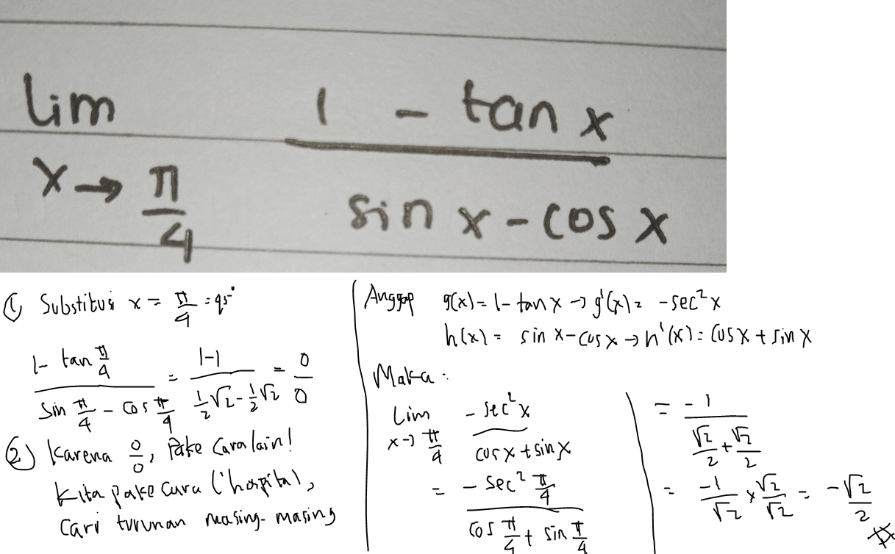 lim 1 - tan x
x→ π/4 sin x - cos x
① Substitusi x = π/4 = 45°
(1 - tan π/4)/(sin π/4 - cos π/4) = (1-1)/(½√2 - ½√2) = 0/0
② Karena 0/0, Pake cara lain!
Kita pake cara L'hospital,
Cari turunan masing-masing
Anggap g(x) = 1 - tan x → g'(x) = -sec²x
h(x) = sin x - cos x → h'(x) = cos x + sin x
Maka :
Lim x→ π/4 (-sec²x)/(cos x + sin x)
= (-sec² π/4)/(cos π/4 + sin π/4)
= -1/(√2/2 + √2/2)
= -1/√2 × √2/√2 = -√2/2 #